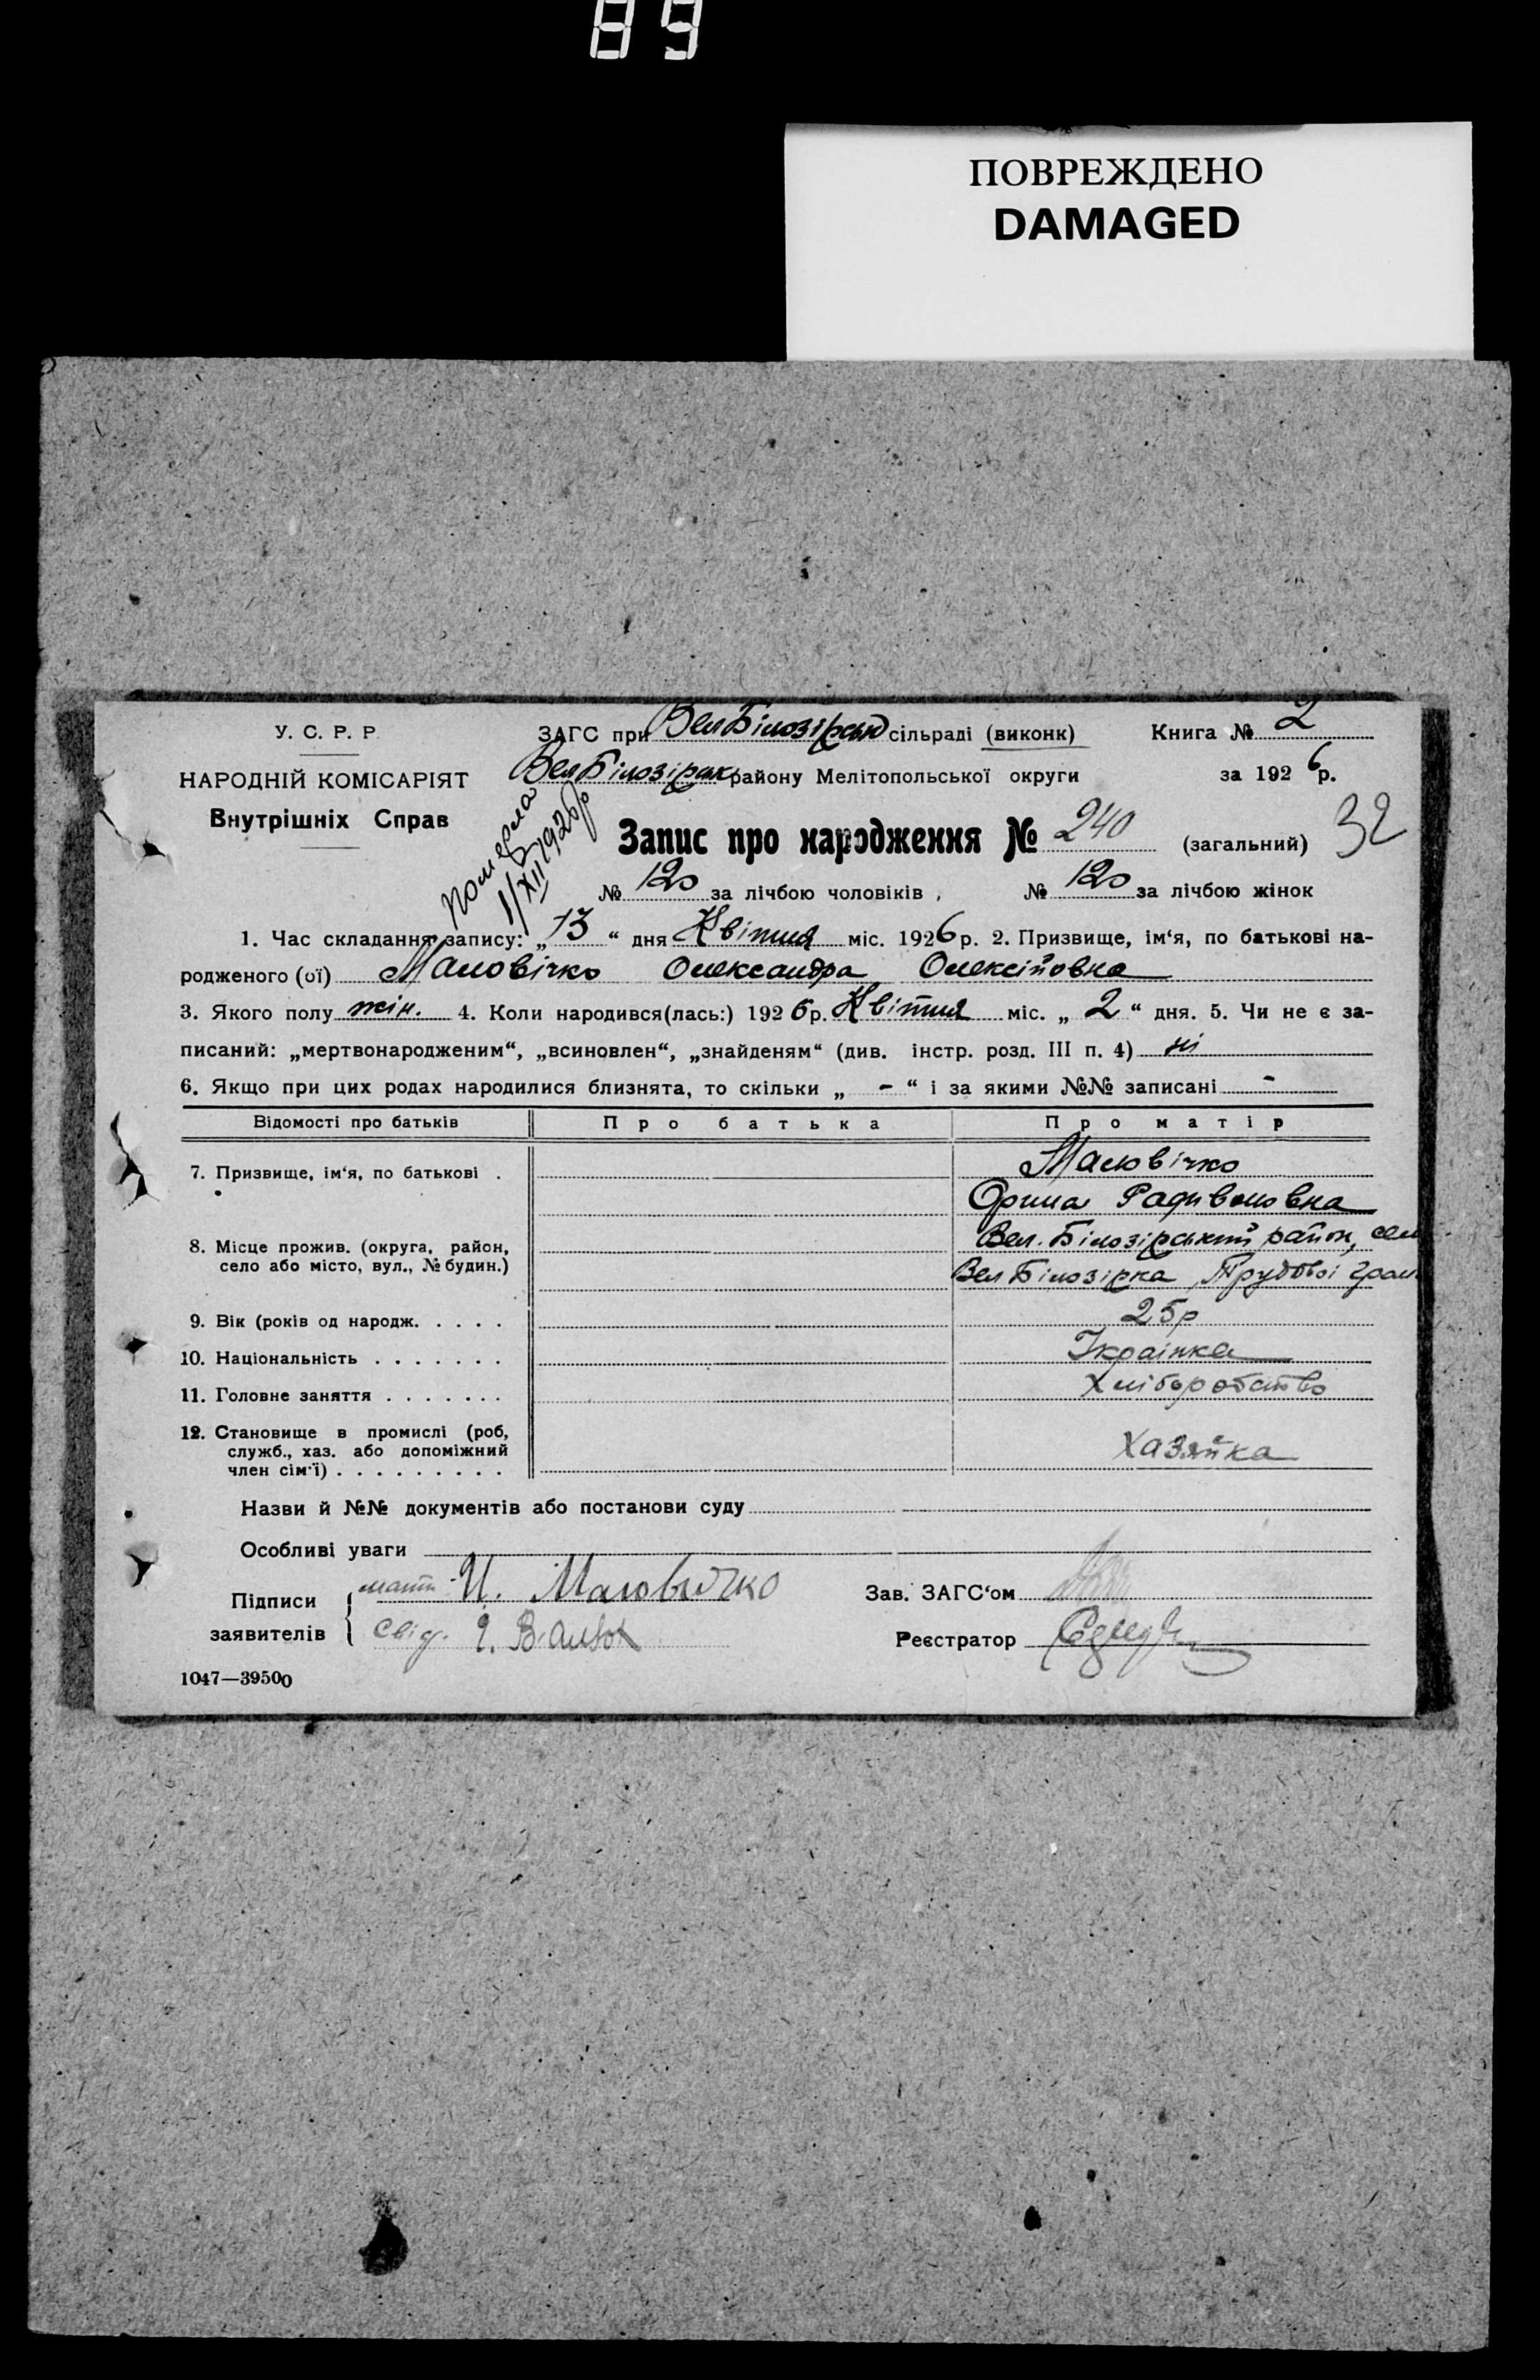 89
ПОВРЕЖДЕНО
DAMAGED
У. С. Р. Р
НАРОДНІЙ КОМІСАРІЯТ
Внутрішніх Справ
ЗАГС при Вел Білозірськ сільраді (виконк)
Вел Білозірськ району Мелітопольської округи
Книга № 2
за 1926 р.
померла
1/XII 1926 р
Запис про народження № 240 (загальний)
32
№ 120 за лічбою чоловіків , № 120 за лічбою жінок
1. Час складання запису: „ 13 “ дня Квітня міс. 1926 р. 2. Призвище, ім‘я, по батькові на-
родженого (ої) Маловічко Олександра Олексіївна
3. Якого полу жін. 4. Коли народився(лась:) 1926 р. Квітня міс. „ 2 “ дня. 5. Чи не є за-
писаний: „мертвонародженим“, „всиновлен“, „знайденям“ (див. інстр. розд. III п. 4) ні
6. Якщо при цих родах народилися близнята, то скільки „ - “ і за якими №№ записані -
Відомості про батьків Про батька Про матір
7. Призвище, ім‘я, по батькові . Маловічко
Орина Радивоновна
8. Місце прожив. (округа, район, село або місто, вул., № будин.) Вел. Білозірський район, сел
Вел Білозірка, Трудової грам
9. Вік (років од народж. . . . . 25 р
10. Національність . . . . . . . Українка
11. Головне заняття . . . . . . . Хліборобство
12. Становище в промислі (роб,
служб., хаз. або допоміжний
член сім‘ї) . . . . . . . . . Хазяйка
Назви й №№ документів або постанови суду
Особливі уваги
Підписи
заявителів
мати И. Маловичко
свід.
Зав. ЗАГС‘ом
Реєстратор
1047—39500